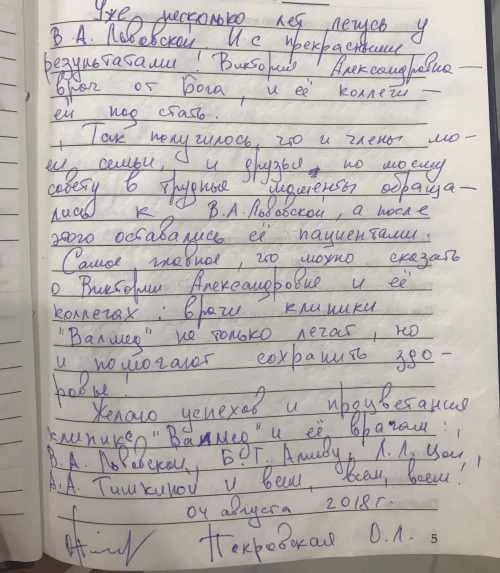 Уже несколько лет лечусь у
В. А. Львовской. И с прекрасными
результатами! Виктория Александровна –
врач от Бога, и её коллеги –
ей под стать.
Так получилось, что и члены мо-
ей семьи, и друзья по моему
совету в трудные моменты обраща-
лись к В. А. Львовской, а после
этого оставались её пациентами.
Самое главное, что можно сказать
о Виктории Александровне и её
коллегах: врачи клиники
"Валмед" не только лечат, но
и помогают сохранить здо-
ровье!
Желаю успехов и процветания
клинике "Валмед" и её врачам:
В. А. Львовской, Б. Г. Алиеву, Л. Л. Цой,
А. А. Тишкиной и всем, всем, всем!
04 августа 2018 г.
Покровская О. Л.
5